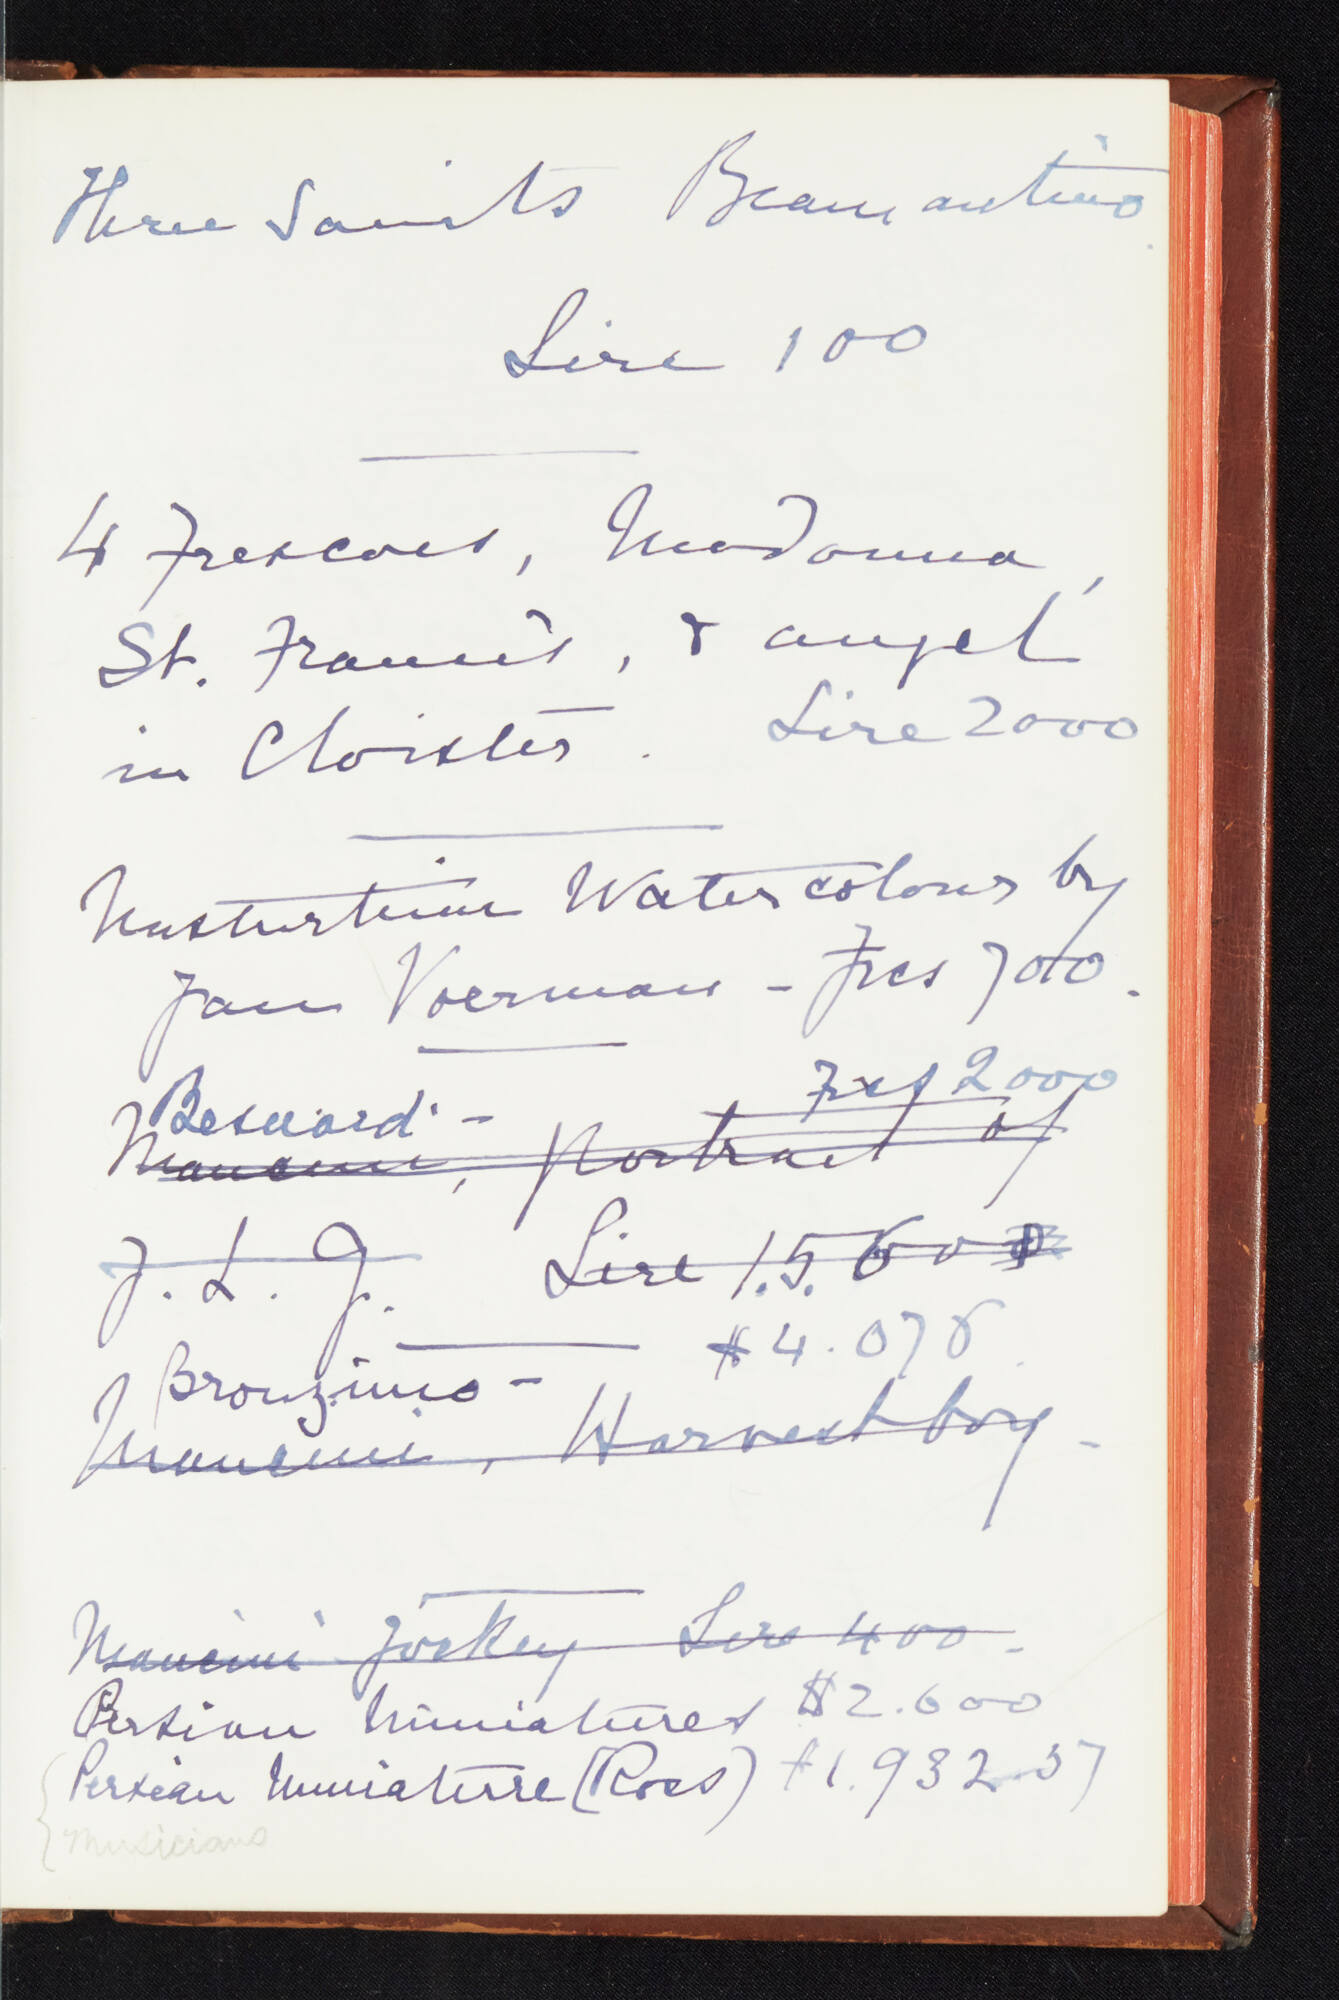 Three Saints Bramantino.
Lire 100
4 Frescoes, Madonna,
St. Francis, & angel
in Cloister. Lire 2000
Nasturtium Watercolour by
Jan Voerman - Frcs 700.
Besnard - Frcs 2000
Mancini, Portrait of
J. L. G. Lire 15.600
$4.076
Bronzino -
Mancini, Harvest boy -
Mancini Jockey Lire 400 -
Persian Miniatures $2.600
Persian Miniature (Ross) $1.932.37
Musicians